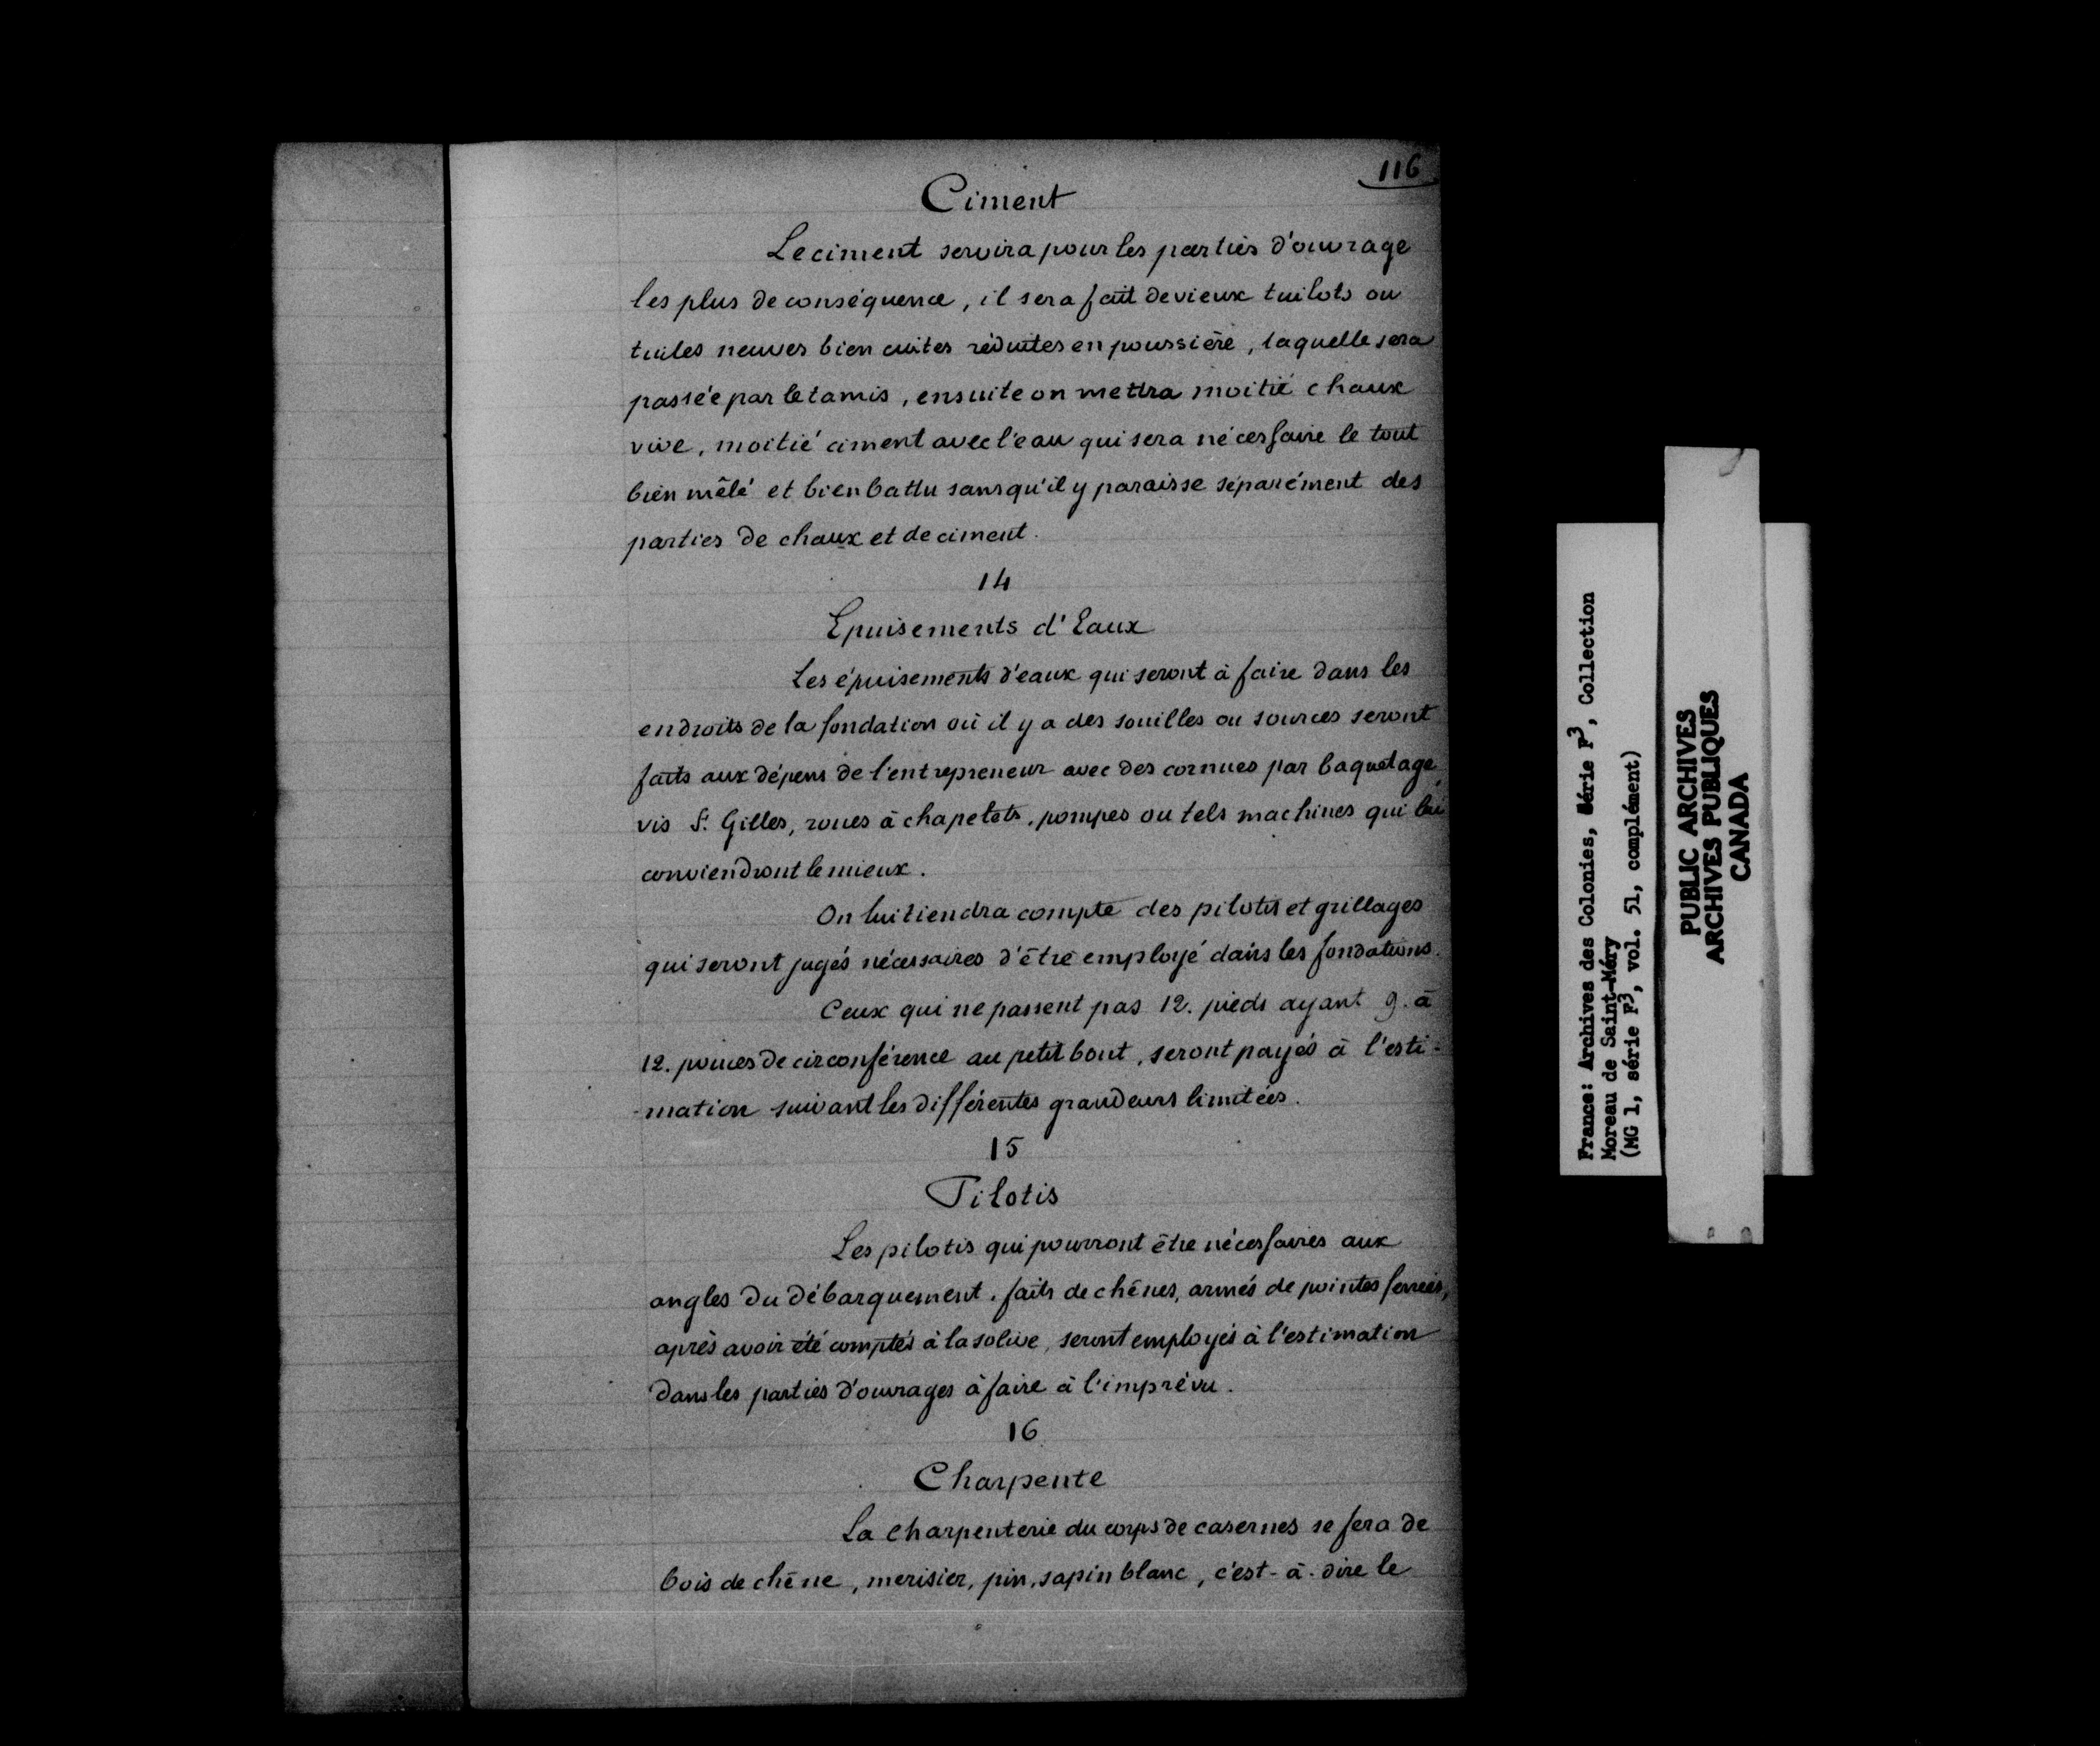 116
Ciment
Le ciment servira pour les parties d'ouvrage
les plus de conséquence, il sera fait de vieux tuilots ou
tuiles neuves bien cuites réduites en poussière, laquelle sera
passée par le tamis, ensuite on mettra moitié chaux
vive, moitié ciment avec l'eau qui sera nécessaire le tout
bien mêlé et bien battu sans qu'il y paraisse séparément des
parties de chaux et de ciment.
14
Epuisements d'Eaux
Les épuisements d'eaux qui seront à faire dans les
endroits de la fondation où il y a des souilles ou sources seront
faits aux dépens de l'entrepreneur avec des cornues par baquetage,
vis St. Gilles, roues à chapelets, pompes ou tels machines qui lui
conviendront le mieux.
On lui tiendra compte des pilotis et grillages
qui seront jugés nécessaires d'être employé dans les fondations.
Ceux qui ne passent pas 12. pieds ayant 9. à
12. pouces de circonférence au petit bout, seront payés à l'esti-
-mation suivant les différentes grandeurs limitées.
15
Pilotis
Les pilotis qui pourront être nécessaires aux
angles du débarquement, faits de chênes, armés de pointes ferrées,
après avoir été comptés à la solive, seront employés à l'estimation
dans les parties d'ouvrages à faire à l'imprévu.
16
Charpente
La charpenterie du corps de casernes se fera de
bois de chêne, merisier, pin, sapin blanc, c'est-à-dire le
France: Archives des Colonies, Série F3, Collection
Moreau de Saint-Méry
(MG 1, série F3, vol. 51, complément)
PUBLIC ARCHIVES
ARCHIVES PUBLIQUES
CANADA